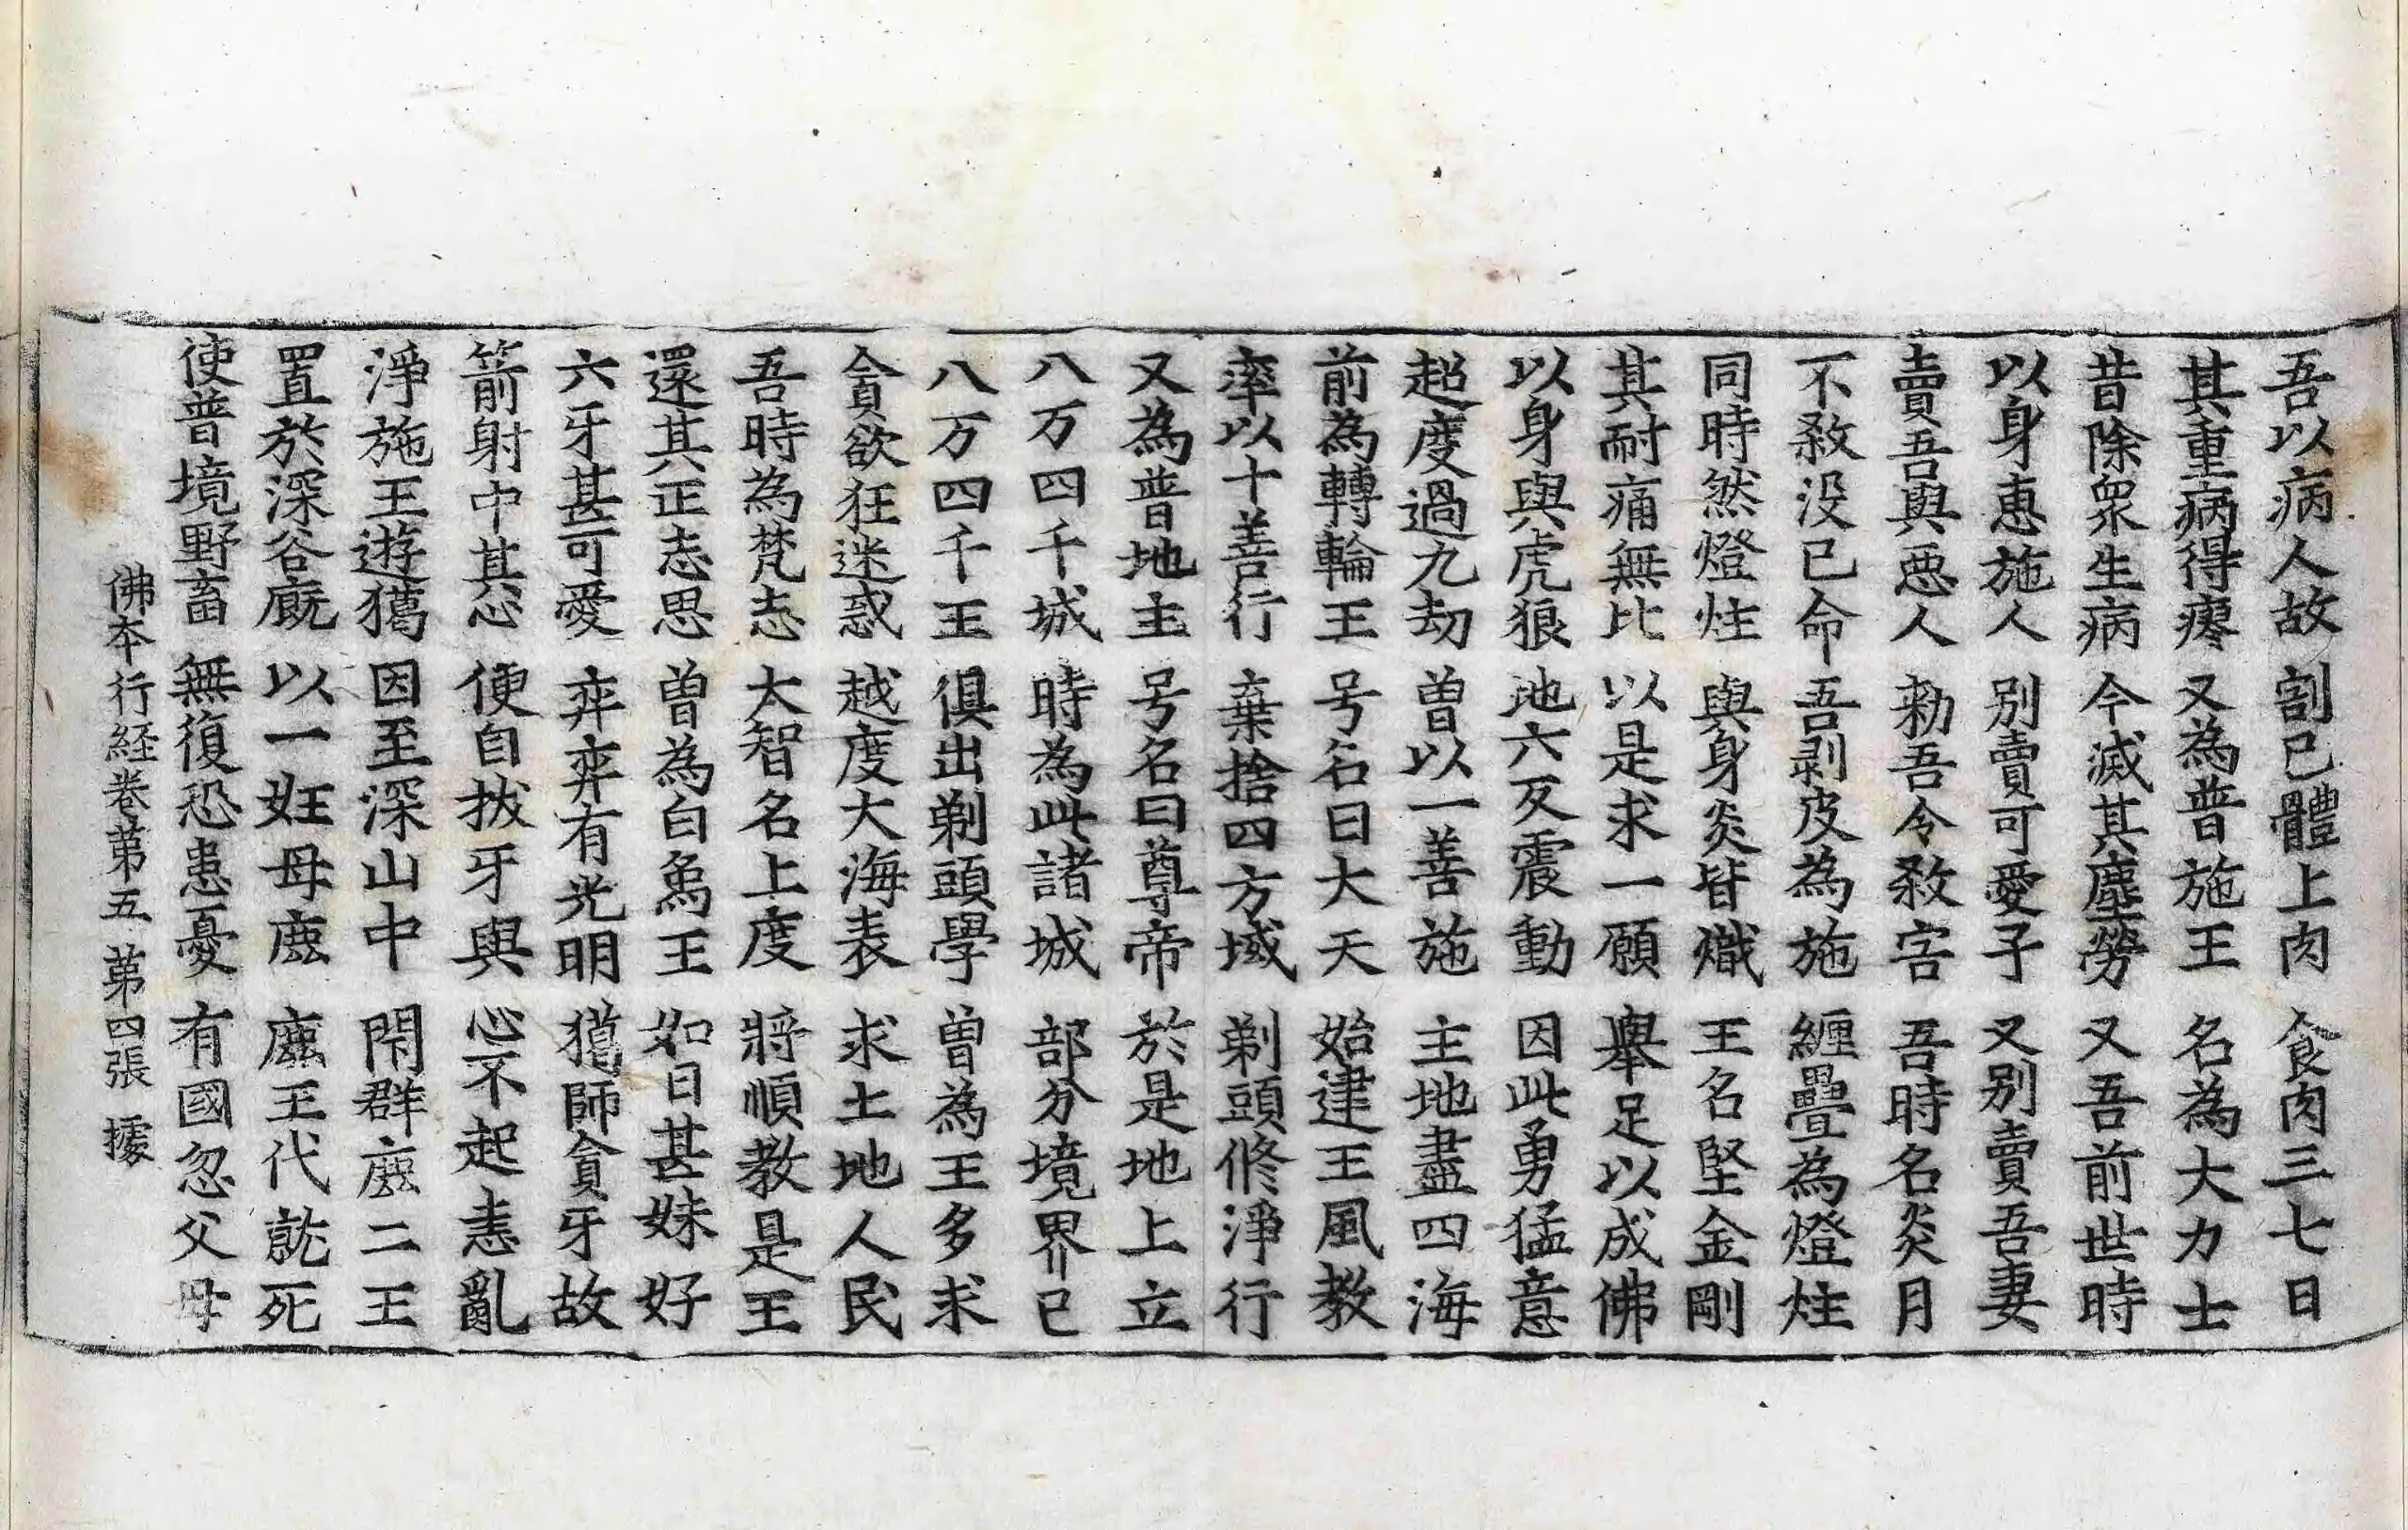 吾以病人故 割己體上肉 食肉三七日
其重病得瘳 又為普施王 名為大力士
昔除衆生病 今滅其塵勞 又吾前世時
以身惠施人 別賣可愛子 又別賣吾妻
賣吾與惡人 勑吾令敘害 吾時名炎月
不敘没己命 吾剥皮為施 纏疊為燈炷
同時然燈炷 與身炎皆熾 王名堅金剛
其耐痛無比 以是求一願 舉足以成佛
以身與虎狼 地六反震動 因此勇猛意
超度過九劫 曽以一善施 主地盡四海
前為轉輪王 号名曰大天 始建王風教
率以十善行 棄捨四方域 剃頭修淨行
又為普地主 号名曰尊帝 於是地上立
八万四千城 時為此諸城 部分境界已
八万四千王 俱出剃頭學 曽為王多求
貪欲狂迷惑 越度大海表 求土地人民
吾時為梵志 太智名上度 將順教是王
還其正志思 曽為白象王 如日甚姝好
六牙甚可愛 弈弈有光明 獦師貪牙故
箭射中其心 便自拔牙與 心不起恚亂
淨施王遊獦 因至深山中 閇群鹿二王
置於深谷廐 以一妊母鹿 鹿王代就死
使普境野畜 無復恐患憂 有國忽父母
佛本行経卷第五 第四張 據